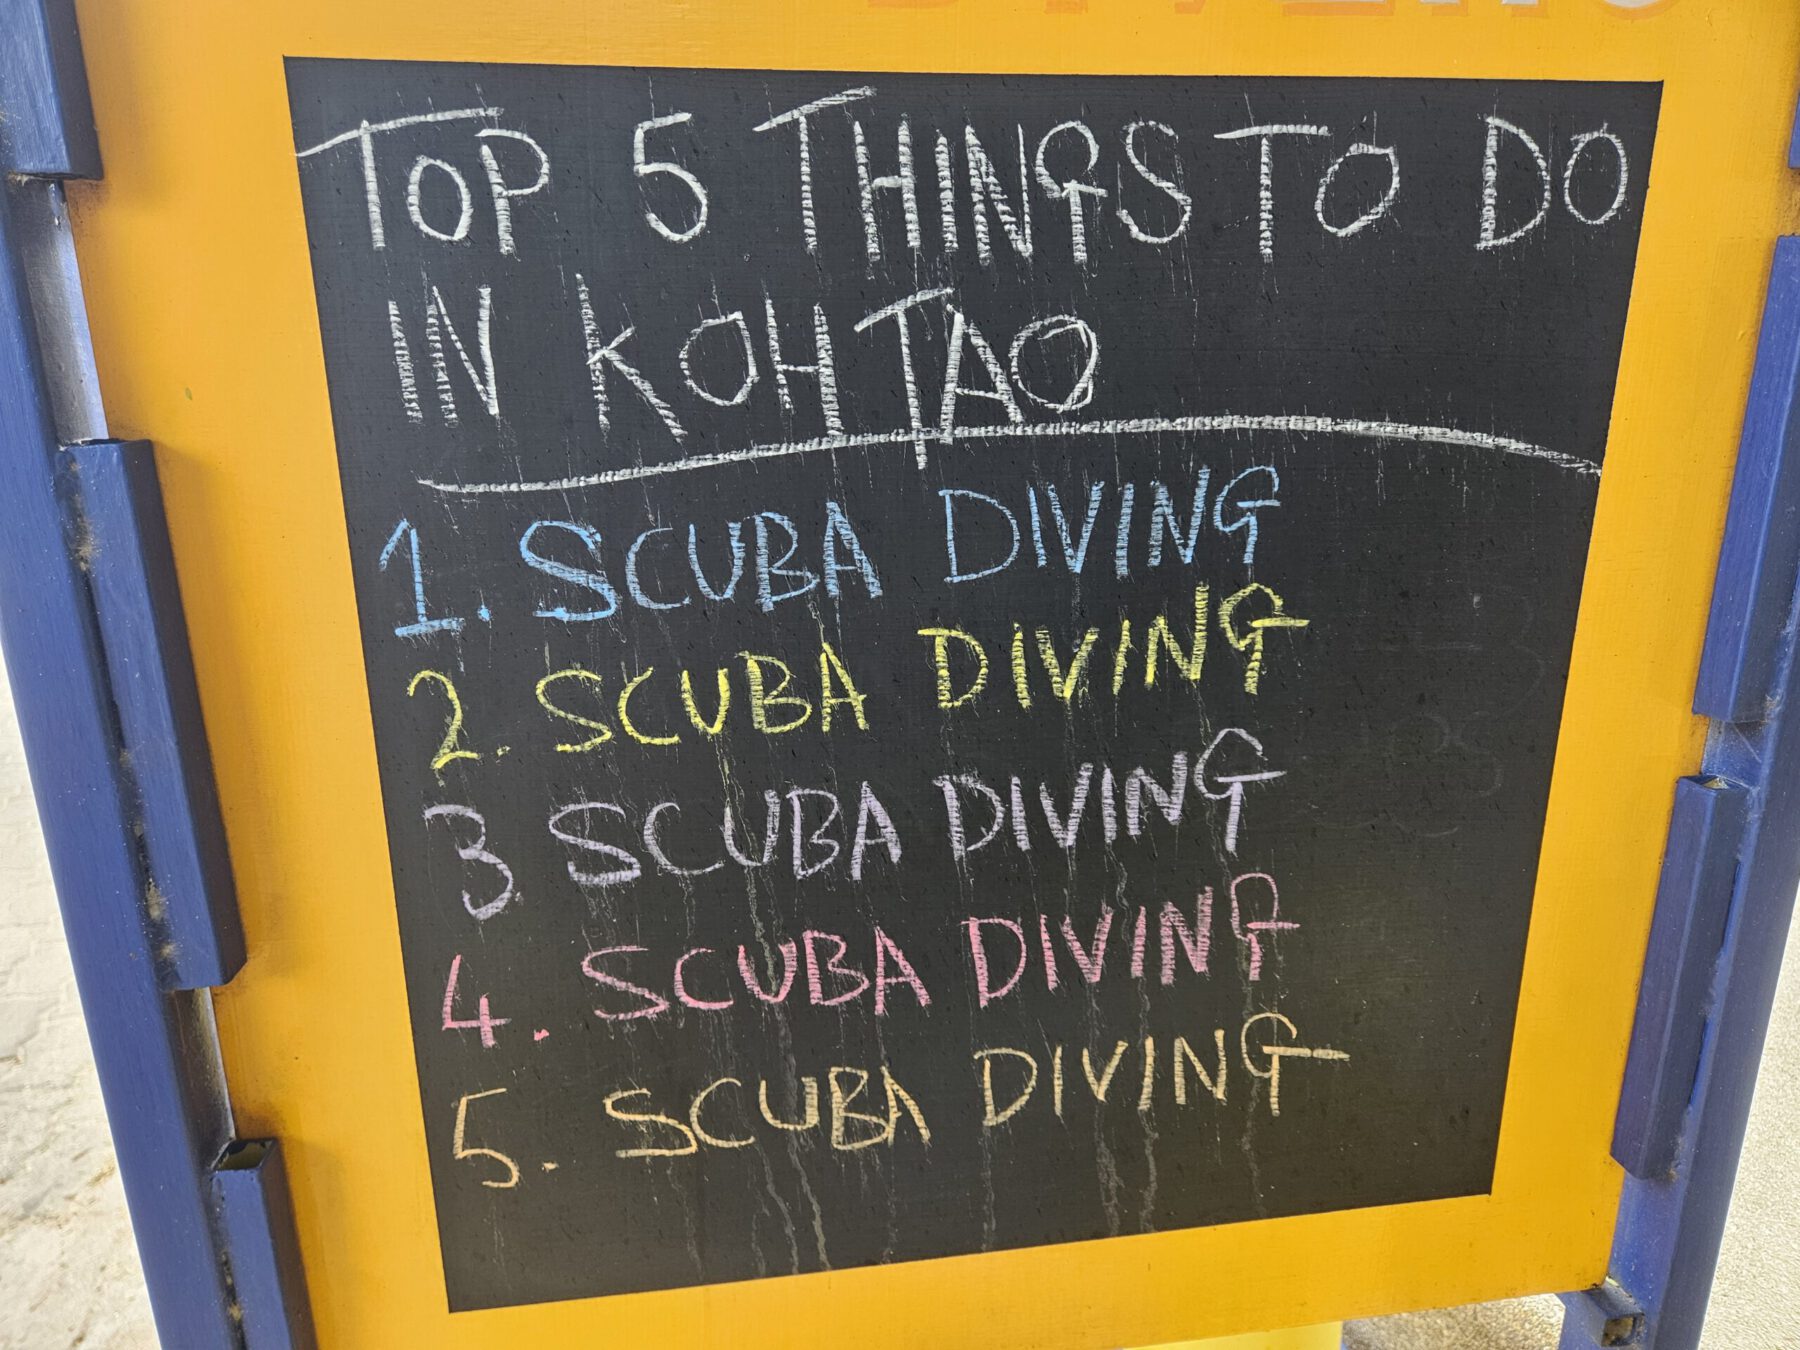 TOP 5 THINGS TO DO
IN KOH TAO
1. SCUBA DIVING
2. SCUBA DIVING
3 SCUBA DIVING
4. SCUBA DIVING
5. SCUBA DIVING